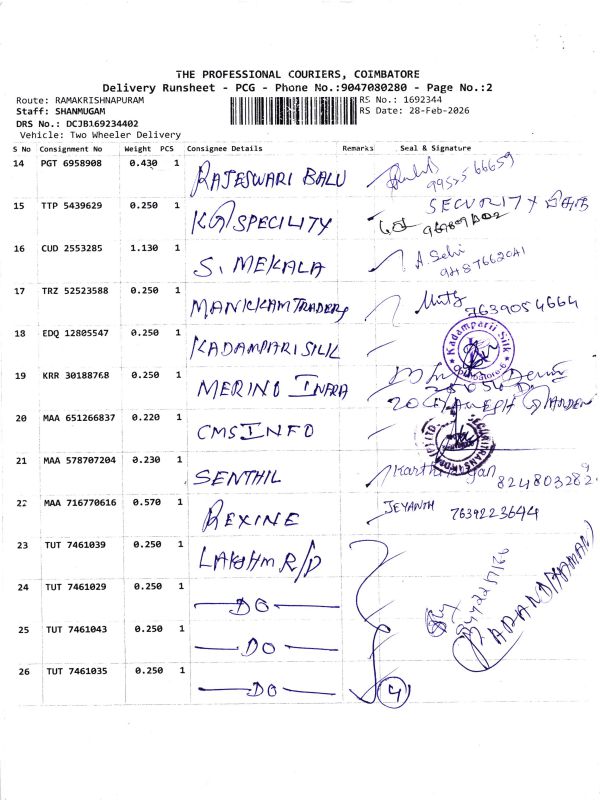 THE PROFESSIONAL COURIERS, COIMBATORE
Delivery Runsheet - PCG - Phone No.:9047080280 - Page No.:2
Route: RAMAKRISHNAPURAM RS No.: 1692344
Staff: SHANMUGAM RS Date: 28-Feb-2026
DRS No.: DCJB169234402
Vehicle: Two Wheeler Delivery
S No Consignment No Weight PCS Consignee Details Remarks Seal & Signature
14 PGT 6958908 0.430 1 RAJESWARI BALU
15 TTP 5439629 0.250 1 KG SPECILITY SECURITY
16 CUD 2553285 1.130 1 S. MEKALA A. Selvi
9487662041
17 TRZ 52523588 0.250 1 MANICKAM TRADERS 7639054664
18 EDQ 12805547 0.250 1 KADAMPARI SILK Kadamparii Silk
19 KRR 30188768 0.250 1 MERINO INFRA
20 MAA 651266837 0.220 1 CMS INFO
21 MAA 578707204 0.230 1 SENTHIL 8248032829
22 MAA 716770616 0.570 1 REXINE JEYANTH 7639223644
23 TUT 7461039 0.250 1 LAKSHMI R/D
24 TUT 7461029 0.250 1 DO
25 TUT 7461043 0.250 1 DO
26 TUT 7461035 0.250 1 DO 4